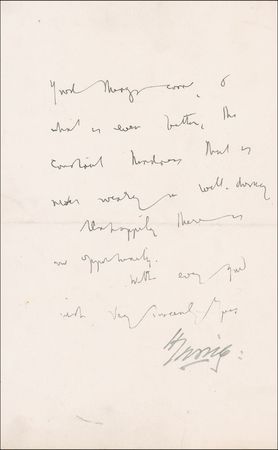 Good things come, &
what is even better, the
constant kindness that is
never weary in well-doing
Unhappily there is
no opportunity.
With every good
wish Very sincerely yours
H Irving: